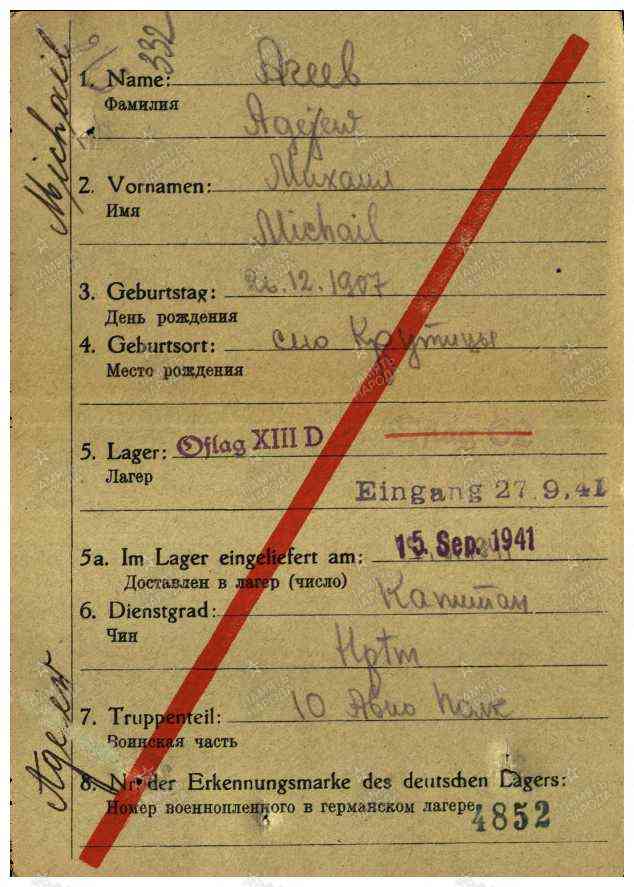 332
1. Name: Агеев
Фамилия
Agejew
2. Vornamen: Михаил
Имя
Michail
3. Geburtstag: 26.12.1907
День рождения
4. Geburtsort: село Крутицы
Место рождения
5. Lager: Oflag XIII D
Лагер
Eingang 27.9.41
5a. Im Lager eingeliefert am: 15. Sep. 1941
Доставлен в лагер (число)
6. Dienstgrad: Капитан
Чин
Hptm
7. Truppenteil: 10 Авио полк
Воинская часть
8. Nr. der Erkennungsmarke des deutschen Lagers:
Номер военнопленного в германском лагере 4852
Agejew
Michail